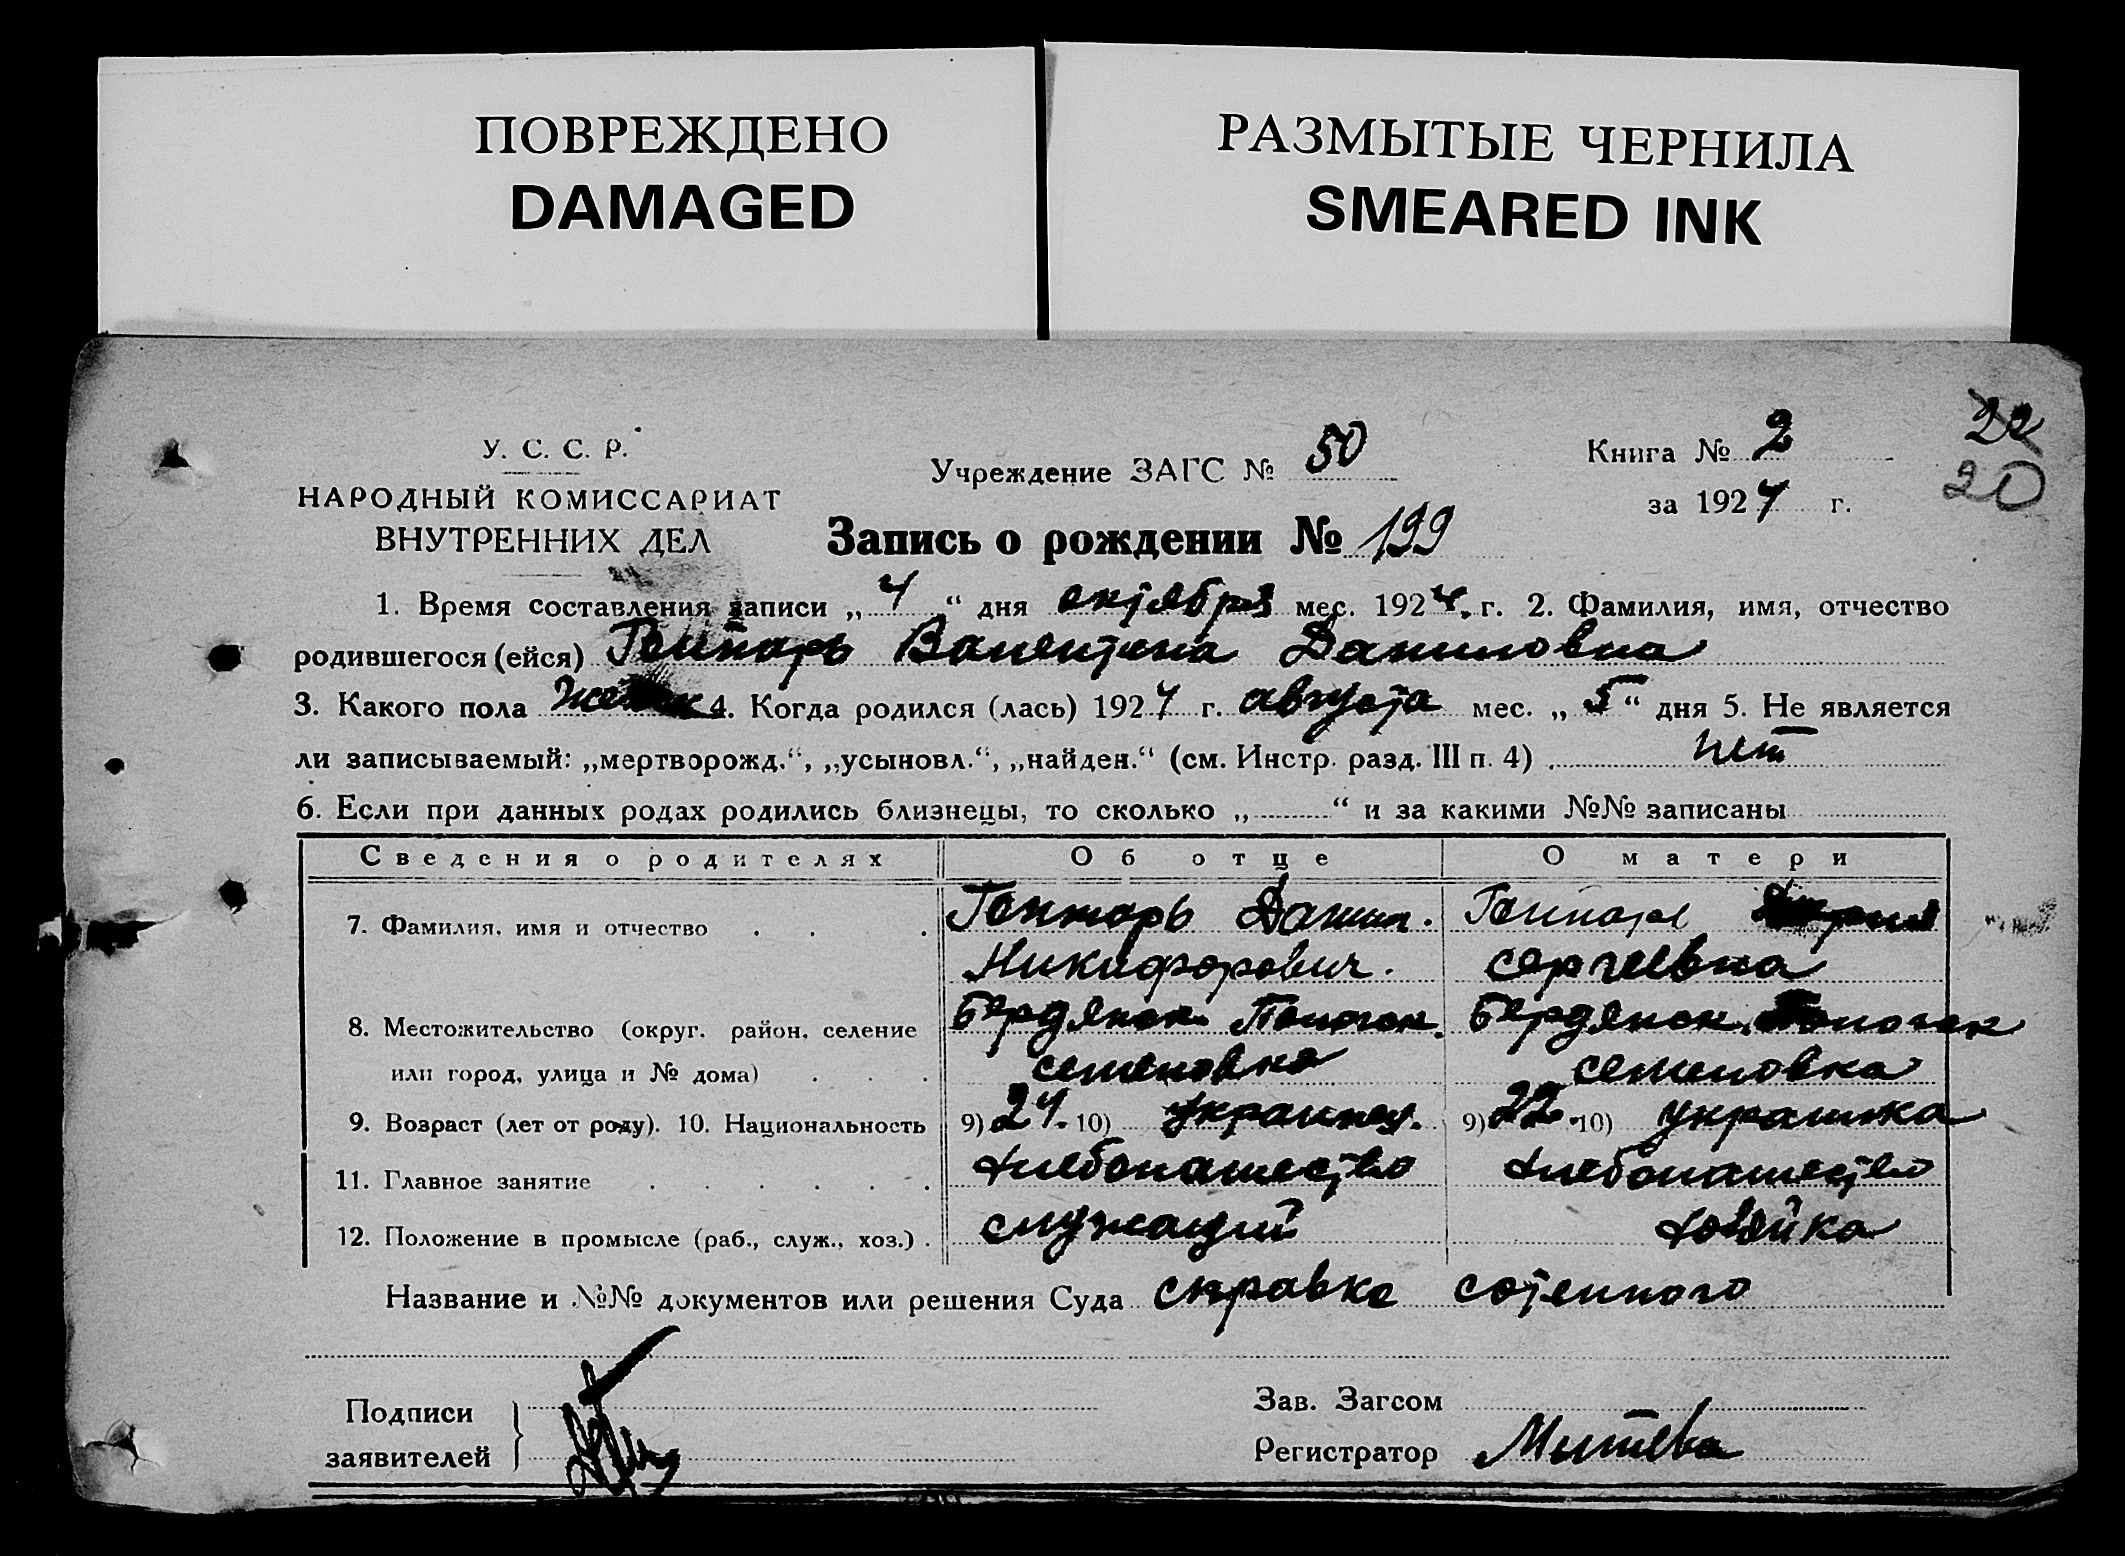 ПОВРЕЖДЕНО
DAMAGED
РАЗМЫТЫЕ ЧЕРНИЛА
SMEARED INK
22
20
У. С. С. Р.
НАРОДНЫЙ КОМИССАРИАТ
ВНУТРЕННИХ ДЕЛ
Учреждение ЗАГС № 50
Книга № 2
за 1924 г.
Запись о рождении № 199
1. Время составления записи „ 4 “ дня октября мес. 1924. г. 2. Фамилия, имя, отчество
родившегося (ейся) Валентина Даниловна
3. Какого пола 4. Когда родился (лась) 1924 г. августа мес. „ 5 “ дня 5. Не является
ли записываемый: „мертворожд.“, „усыновл.“, „найден.“ (см. Инстр. разд. III п. 4) нет
6. Если при данных родах родились близнецы, то сколько „ “ и за какими №№ записаны
Сведения о родителях Об отце О матери
7. Фамилия, имя и отчество Данил.
Никифорович. Сергеевна
8. Местожительство (округ, район, селение Бердянск. Пологск. Бердянск. Пологск
или город, улица и № дома) Семеновка Семеновка
9. Возраст (лет от роду). 10. Национальность 9) 24. 10) Украинец. 9) 22. 10) украинка
11. Главное занятие Хлебопашество Хлебопашество
12. Положение в промысле (раб., служ., хоз.) служащий хозяйка
Название и №№ документов или решения Суда справка сотенного
Подписи
заявителей
Зав. Загсом
Регистратор Митева